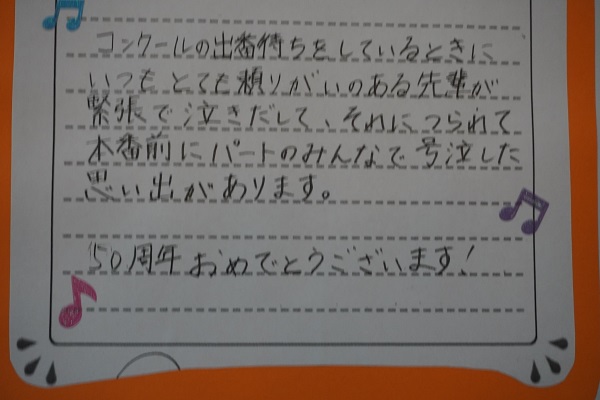 コンクールの出番待ちをしているときに
いつもとても頼りがいのある先輩が
緊張で泣きだして、それにつられて
本番前にパートのみんなで号泣した
思い出があります。
50周年おめでとうございます!